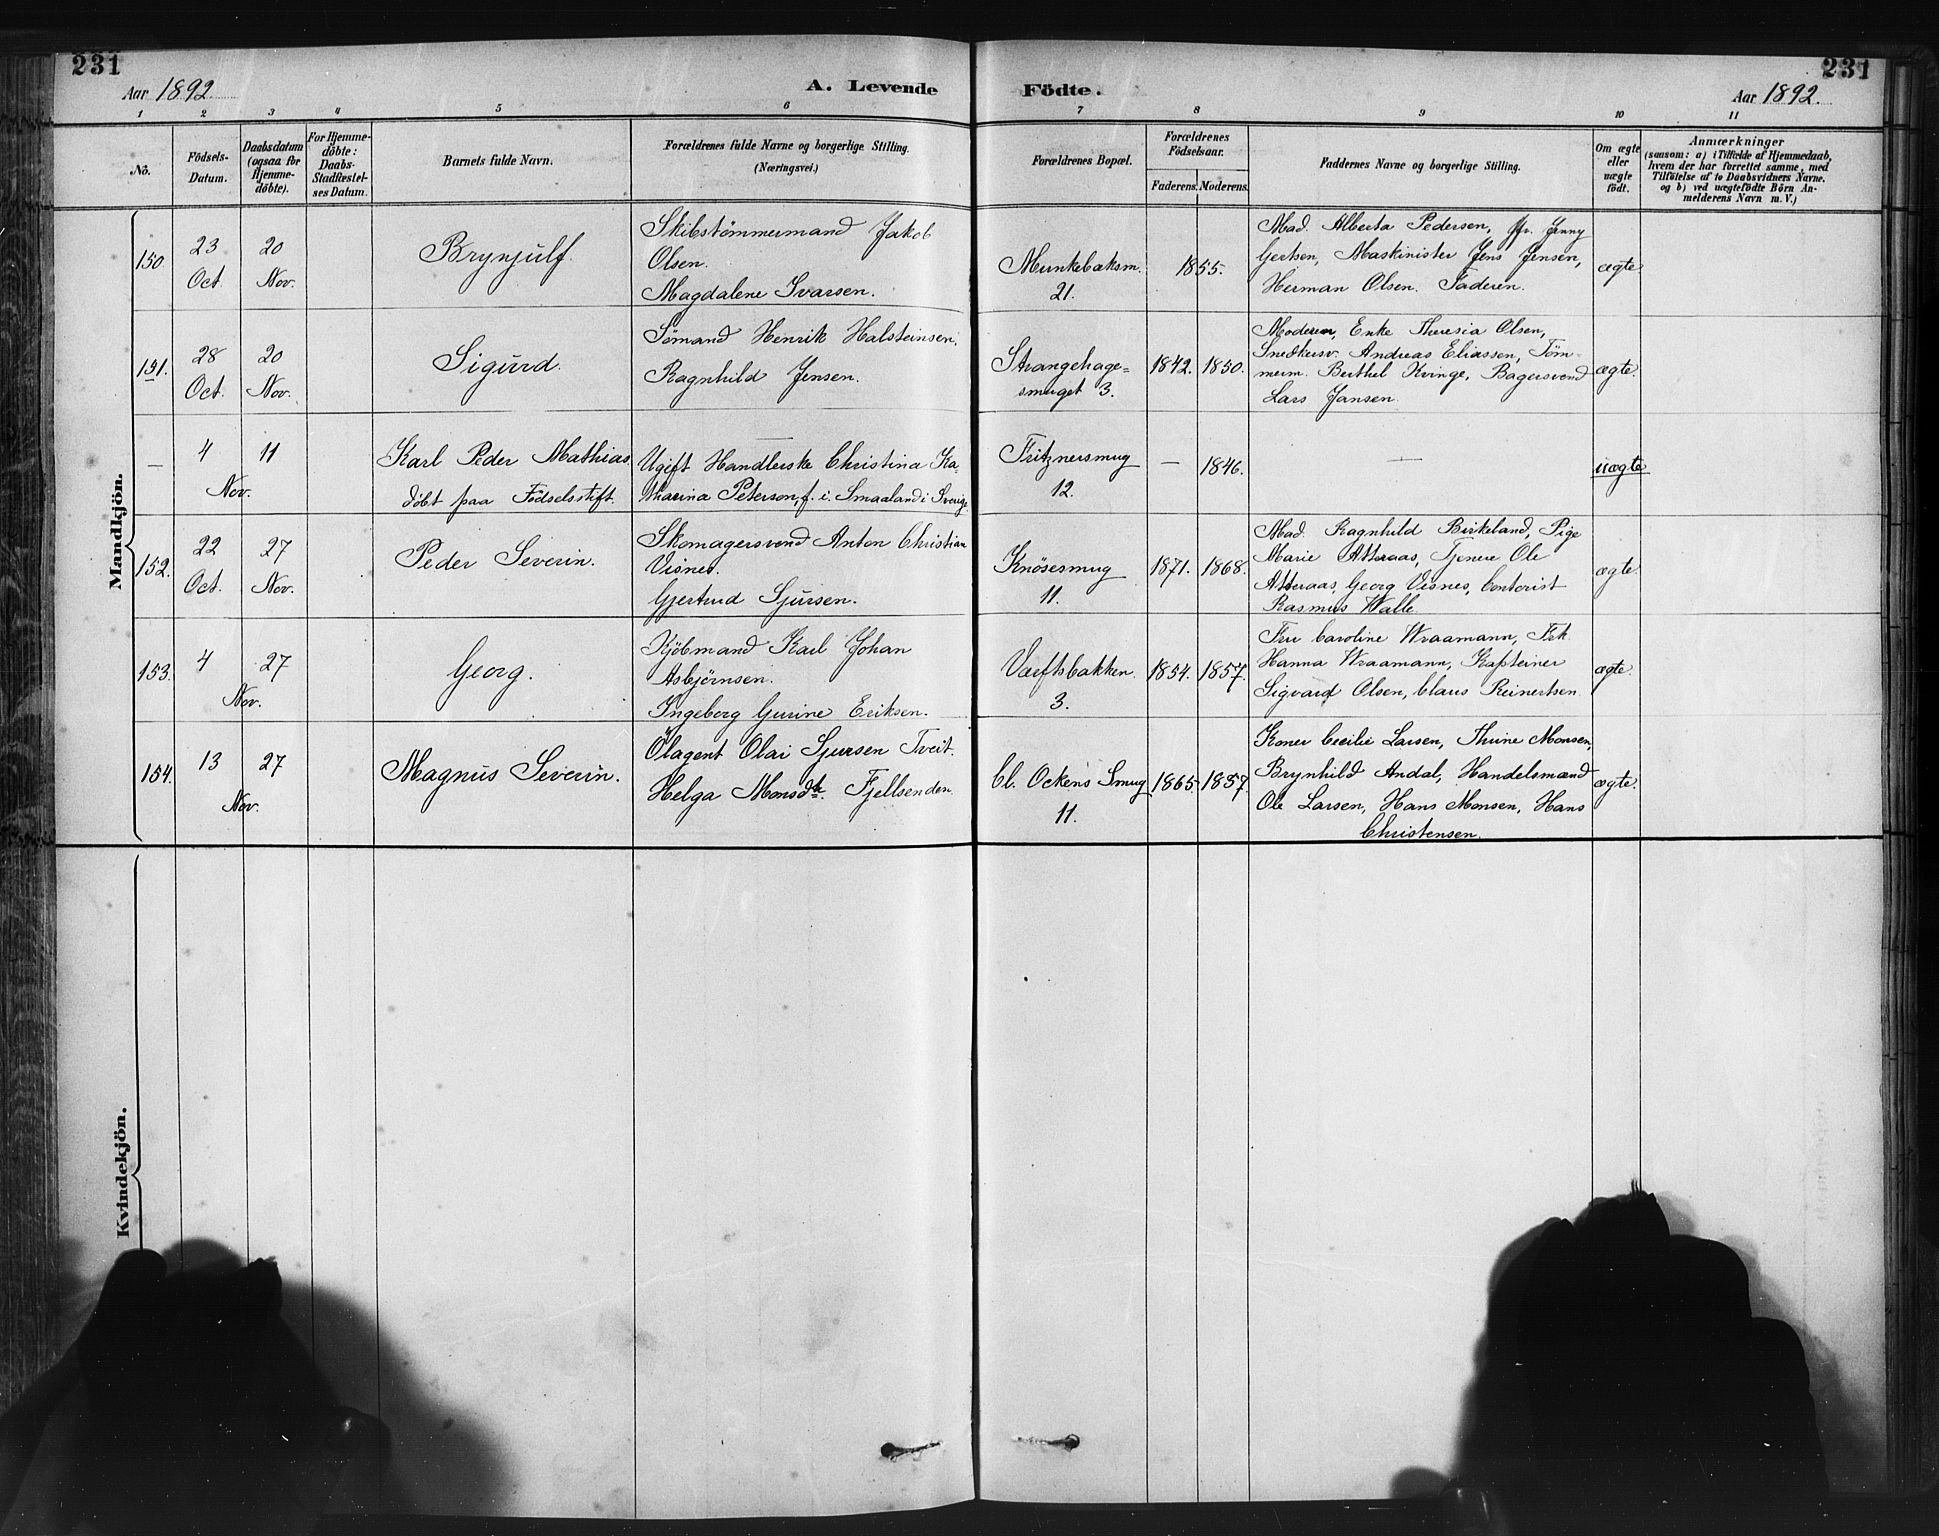 231
231
Aar 1892.
A. Levende
Födte.
Aar 1892.
1 2 3 4 5 6 7 8 9 10 11
No.
Födsels-
Datum.
Daabsdatum
(ogsaa for
Hjemme-
döbte).
For Hjemme-
döbte:
Daabs-
Stadfæstel-
ses Datum.
Barnets fulde Navn.
Forældrenes fulde Navne og borgerlige Stilling.
(Næringsvei.)
Forældrenes Bopæl.
Forældrenes
Födselsaar.
Faderens. Moderens.
Faddernes Navne og borgerlige Stilling.
Om ægte
eller
uægte
födt.
Anmærkninger
(saasom: a) i Tilfælde af Hjemmedaab,
hvem der har forrettet samme, med
Tilföielse af to Daabsvidners Navne.
og b) ved uægtefödte Börn An-
melderens Navn m. V.)
Mandkjön.
150.
23
Oct.
20
Nov.
Brynjulf
Skibstömmermand Jakob
Olsen.
Magdalene Ivarsen.
Munkebæksm.
21.
1855.
Mad. Alberta Pedersen, Jfr. Jenny
Gertsen, Maskinister Jens Jensen,
Herman Olsen. Faderen.
ægte
151.
28
Oct.
20
Nov.
Sigurd.
Sömand Henrik Halsteinsen.
Ragnhild Jensen.
Strangehage=
smuget 3.
1842. 1850.
Moderen, Enke Theresia Olsen,
Snedkersv. Andreas Eliassen, Töm-
merm. Berthel Kvinge, Bagersvend
Lars Jansen.
ægte.
—
4
11
Nov.
Karl Peder Mathias
döbt paa Födselsstift.
—
Ugift Handlerske Christina Ka-
tharina Peterson, f. i. Smaaland i Sverige
Fritznersmug
12.
— 1846.
—
uægte
152.
22
Oct.
27
Nov.
Peder Severin.
Skomagersvend Anton Christian
Visnes.
Gjertrud Sjursen.
Knösesmug
11.
1871. 1868.
Mad. Ragnhild Birkeland, Pige
Marie Atteraas, Tjener Ole
Atteraas, Georg Visnes, Contorist
Rasmus Walle.
ægte.
153.
4
27
Nov.
Georg.
Kjöbmand Karl Johan
Asbjörnsen.
Ingeborg Gurine Eriksen.
Værftsbakken.
3.
1854. 1857.
Fru Caroline Wraamann, Frk.
Hanna Wraamann, Kapteiner
Sigvard Olsen, Claus Reinertsen.
ægte.
154.
13
27
Nov.
Magnus Severin.
Ölagent Olai Sjursen Tveit.
Helga Monsdtr. Fjellsenden
Cl. Ockens Smug
11.
1865. 1857.
Koner Cecilie Larsen, Thrine Monsen,
Brynhild Andal, Handelsmænd
Ole Larsen, Hans Monsen, Hans
Christensen.
ægte.
Kvindekjön.